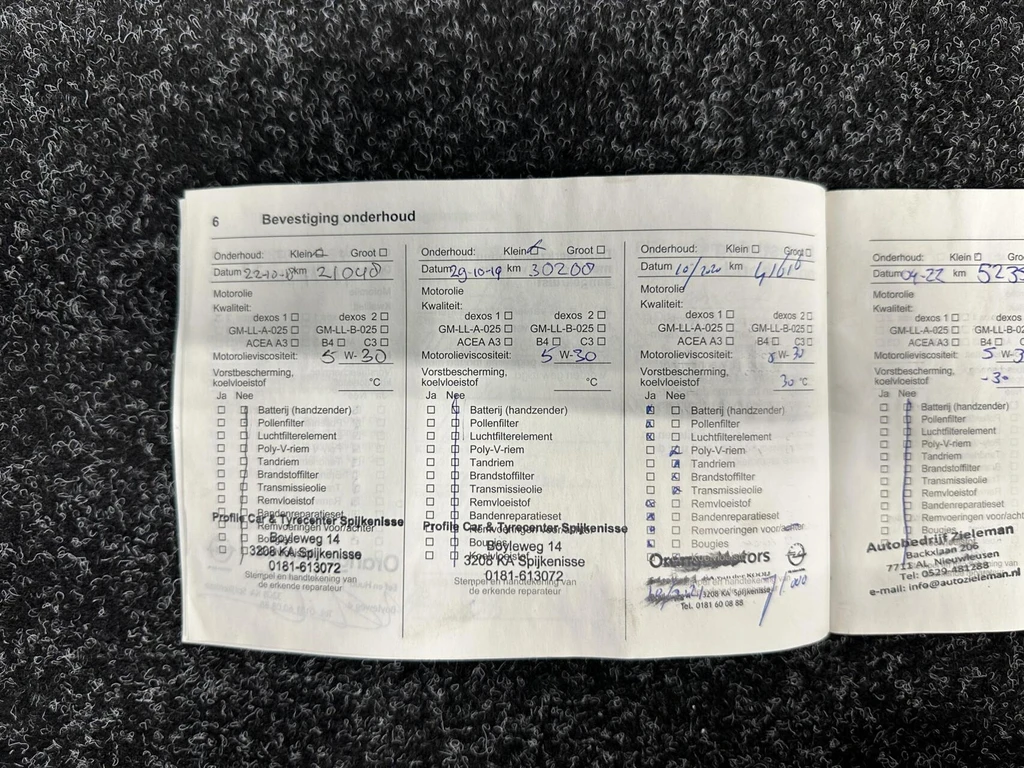 6 Bevestiging onderhoud
Onderhoud: Klein Groot
Datum 22-10-18 km 21048
Motorolie
Kwaliteit:
dexos 1 dexos 2
GM-LL-A-025 GM-LL-B-025
ACEA A3 B4 C3
Motorolieviscositeit: 5 W-30
Vorstbescherming,
koelvloeistof °C
Ja Nee
Batterij (handzender)
Pollenfilter
Luchtfilterelement
Poly-V-riem
Tandriem
Brandstoffilter
Transmissieolie
Remvloeistof
Bandenreparatieset
Profile Car & Tyrecenter Spijkenisse
Remvoeringen voor/achter
Boyleweg 14
3208 KA Spijkenisse
0181-613072
Stempel en handtekening van
de erkende reparateur
Onderhoud: Klein Groot
Datum 29-10-19 km 30200
Motorolie
Kwaliteit:
dexos 1 dexos 2
GM-LL-A-025 GM-LL-B-025
ACEA A3 B4 C3
Motorolieviscositeit: 5 W-30
Vorstbescherming,
koelvloeistof °C
Ja Nee
Batterij (handzender)
Pollenfilter
Luchtfilterelement
Poly-V-riem
Tandriem
Brandstoffilter
Transmissieolie
Remvloeistof
Bandenreparatieset
Profile Car & Tyrecenter Spijkenisse
Remvoeringen voor/achter
Bougies
Boyleweg 14
Koelvloeistof
3208 KA Spijkenisse
0181-613072
Stempel en handtekening van
de erkende reparateur
Onderhoud: Klein Groot
Datum 10/2020 km 41610
Motorolie
Kwaliteit:
dexos 1 dexos 2
GM-LL-A-025 GM-LL-B-025
ACEA A3 B4 C3
Motorolieviscositeit: W-30
Vorstbescherming,
koelvloeistof 30 °C
Ja Nee
Batterij (handzender)
Pollenfilter
Luchtfilterelement
Poly-V-riem
Tandriem
Brandstoffilter
Transmissieolie
Remvloeistof
Bandenreparatieset
Remvoeringen voor/achter
Bougies
Orange Motors
3208 KA Spijkenisse
Tel. 0181 60 08 88
Onderhoud: Klein Gro
Datum 04-22 km 523
Motorolie
Kwaliteit:
dexos 1 dexos
GM-LL-A-025 GM-LL-B-02
ACEA A3 B4 C
Motorolieviscositeit: 5 W-3
Vorstbescherming,
koelvloeistof -3
Ja Nee
Batterij (handzender)
Pollenfilter
Luchtfilterelement
Poly-V-riem
Tandriem
Brandstoffilter
Transmissieolie
Remvloeistof
Bandenreparatieset
Remvoeringen voor/acht
Bougies
Autobedrijf Zieleman
Backxlaan 206
7711 AL Nieuwleusen
Tel: 0529-481288
e-mail: info@autozieleman.nl